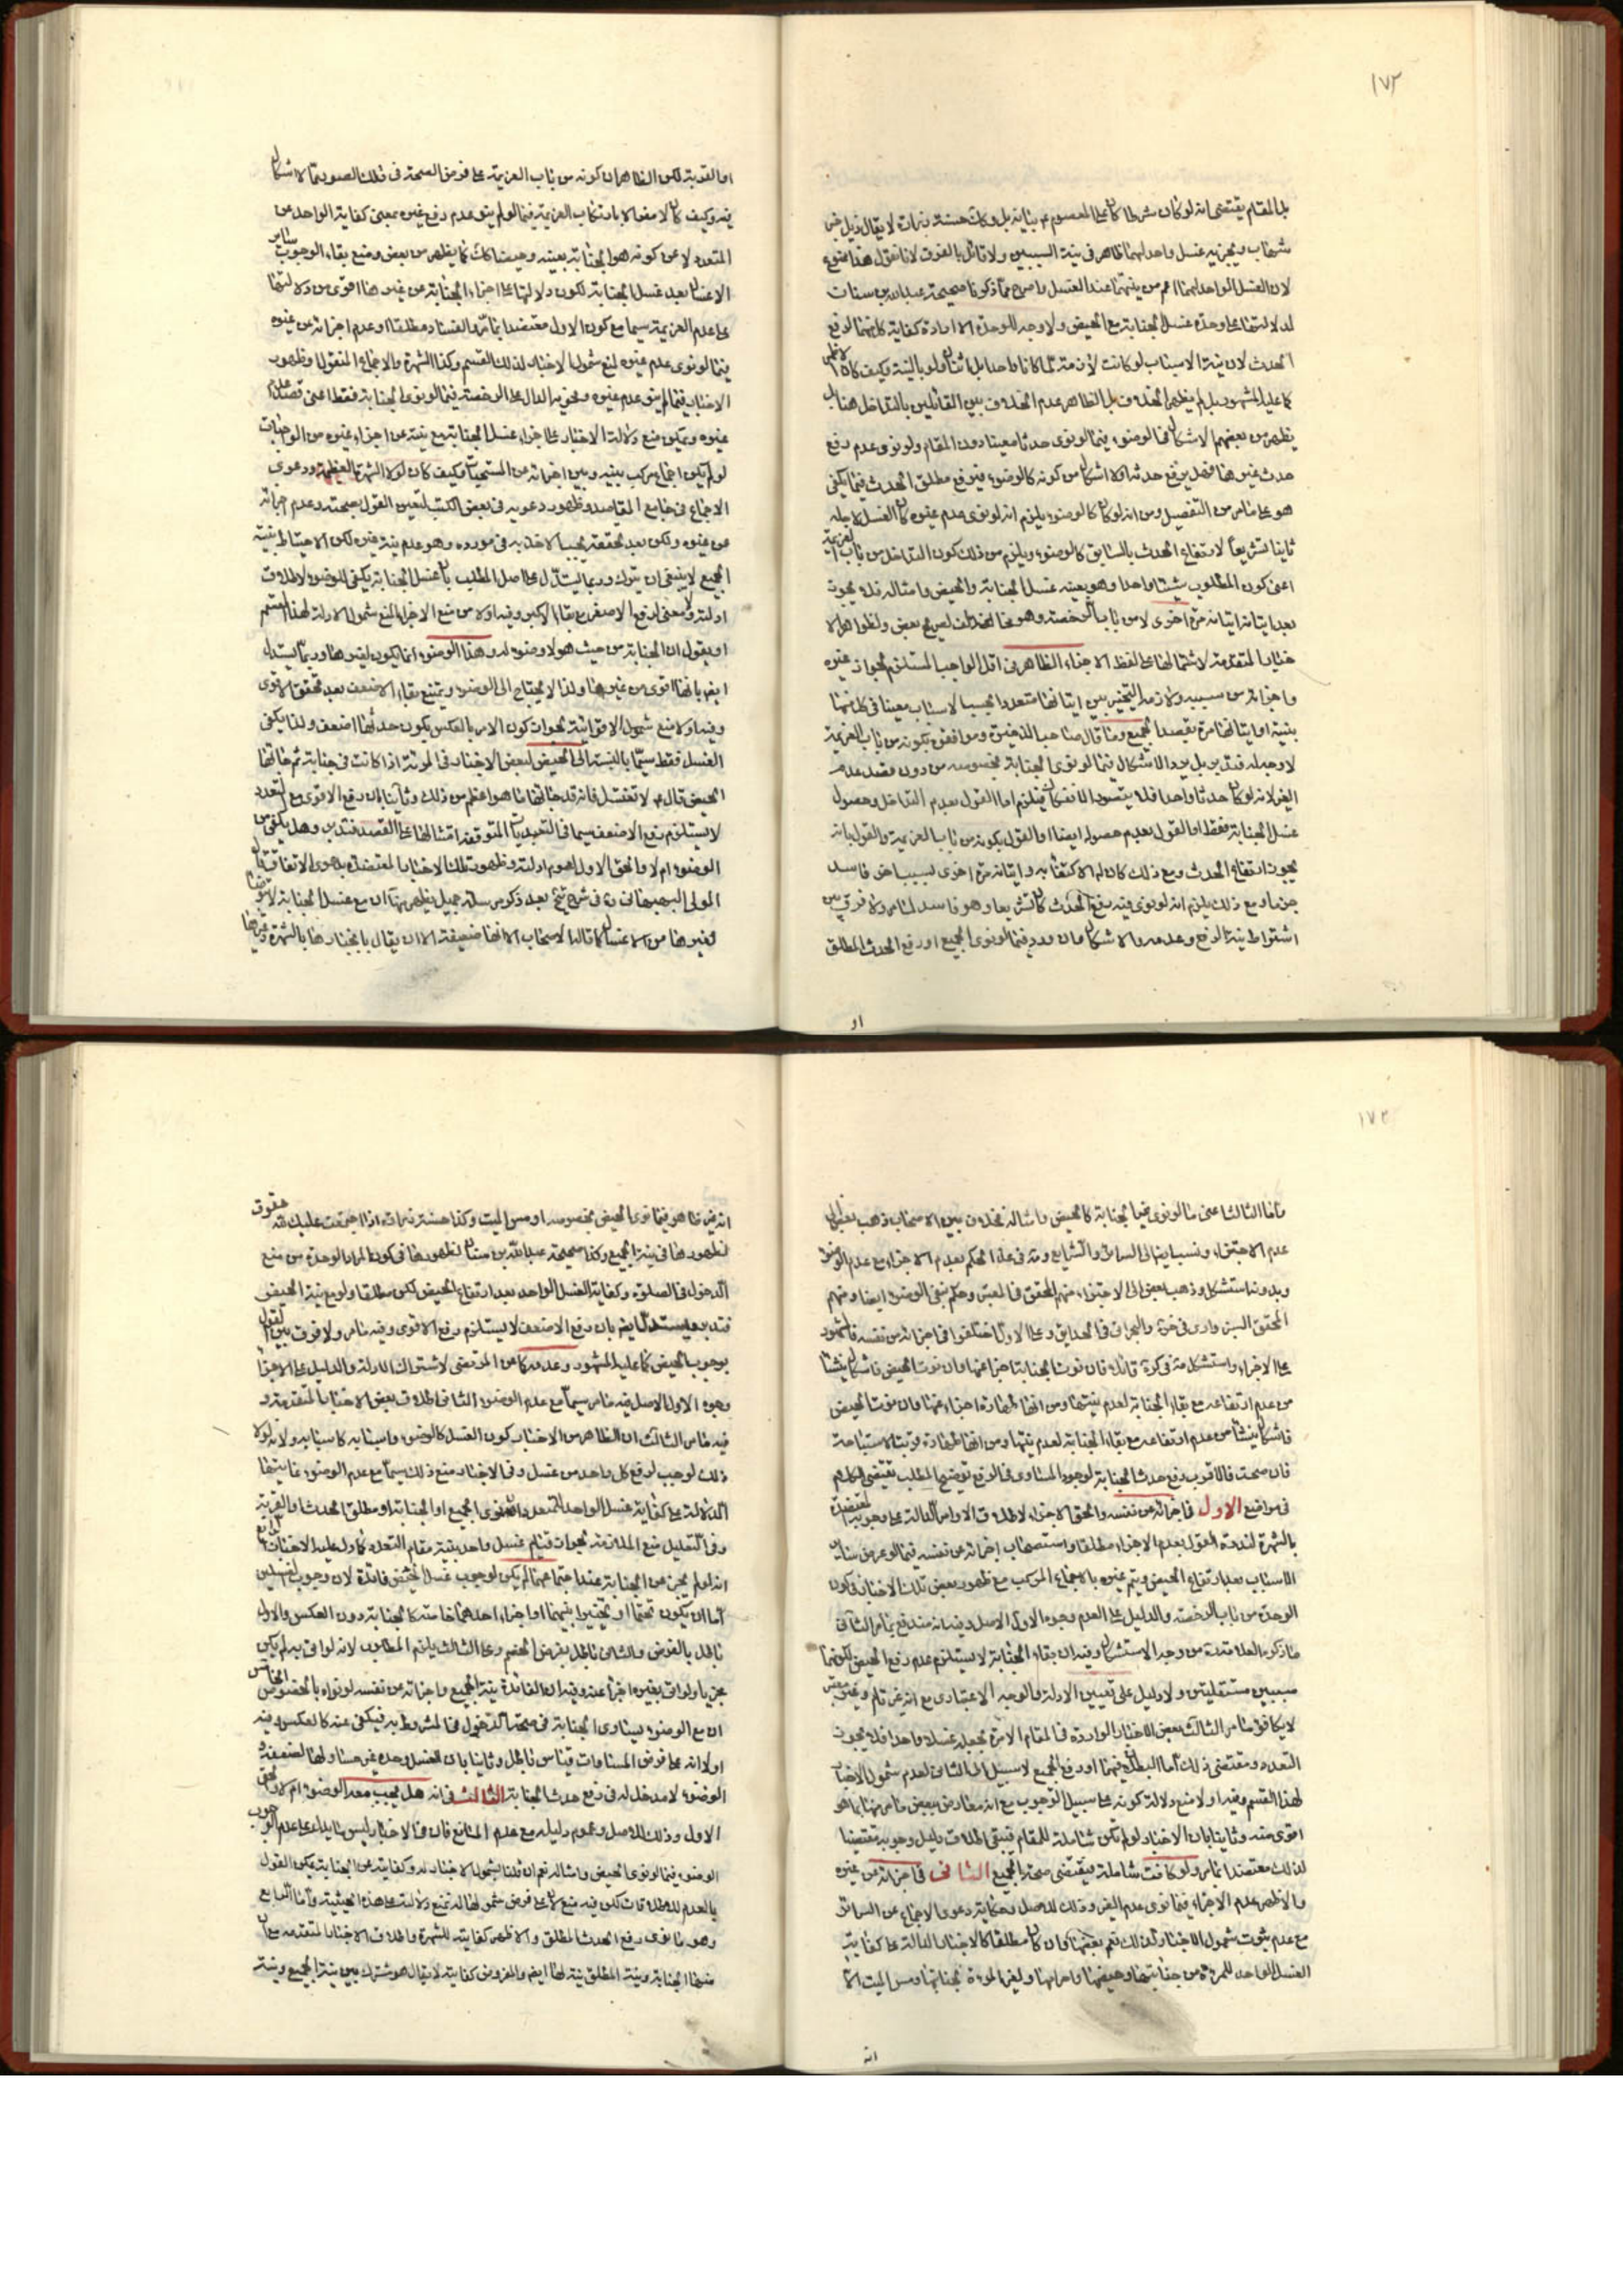 ١٧٢
بل المقام يقتضى انه لو كان شرطا كان على المعصوم ع بيانه بل وكك حسنة زرارة لا يقال ذيل خبر
شهاب ويجزيه غسل واحد لهما ظاهر فى نية السببين ولا قائل بالفرق لانا نقول هذا ممنوع
لان الغسل الواحد لهما اعم من نيتهما عند الغسل واصرح مما ذكرنا صحيحة عبدالله بن سنان
لدلالتها على وحدة غسل الجنابة مع الحيض ولا وجه للوحدة الا ارادة كفاية كل منهما لرفع
الحدث لان نية الاسباب لو كانت لازمة لما كانا واحدا بل اثنان ولو بالنية وكيف كان
كما عليه المشهور بل لم يظهر الخلاف بل الظاهر عدم الخلاف بين القائلين بالتداخل هنا بل
يظهر من بعضهم الاشكال فى الوضوء فيما لو نوى حدثا معينا دون المقام ولو نوى عدم رفع
حدث غيرها فهل يرفع حدثه اولا اشكال من كونه كالوضوء فيرفع مطلق الحدث فيما يكفى
هو على ما مر من التفصيل ومن انه لو كان كالوضوء يلزم انه لو نوى عدم غيره كان الغسل لاجله
ثانيا تشريعاً لارتفاع الحدث بالسابق كالوضوء ويلزم من ذلك كون التداخل من باب العزيمة
اعنى كون المطلوب شيئا واحدا وهو بعينه غسل الجنابة والحيض وامثاله فلا يجوز
بعد اتيانه اتيانه مرة اخرى لا من باب الرخصة وهو
الاخبار المتقدمة لاشتمالها على لفظ الاجزاء الظاهر فى اقل الواجب المستلزم لجواز غيره
واجزائه من سببه ولازمه التخيير بين اتيانها متعددا بحسب الاسباب معينا فى كل منها
بنية او اتيانها مرة بقصد الجميع وما قال صاحب الذخيرة وموافقوه بكونه من باب العزيمة
لا وجه له فتدبر بل يرد الاشكال فيما لو نوى الجنابة بخصوصه من دون قصد عدم
الغير لانه لو كان حدثا واحدا فلا يتصور الانفكاك فيلزم اما القول بعدم التداخل وحصول
غسل الجنابة فقط او القول بعدم حصوله ايضا او القول بكونه من باب العزيمة والقول بانه
يجوز ارتفاع الحدث ومع ذلك كان له الاكتفاء به واتيانه مرة اخرى لسبب اخر فاسد
جزما ومع ذلك يلزم انه لو نوى فيه رفع الحدث كان تشريعا وهو فاسد لما مر ولا فرق بين
اشتراط نية الرفع وعدمه والاشكال وان ورد فيما لو نوى الجميع او رفع الحدث المطلق
او
او القربة لكن الظاهر ان كونه من باب العزيمة على فرض الصحة فى تلك الصورة مما لا اشكال
فيه وكيف كان لا مفر الا بارتكاب العزيمة فيما لو لم ينو عدم رفع غيره بمعنى كفاية الواحد عن
المتعدد لا عن كونه هو الجنابة بعينه وحيضا كك كما يظهر من بعض ومنع بقاء الوجوب لسائر
الاغسال بعد غسل الجنابة لكون دلالتها على اجزاء الجنابة عن غيرها اقوى من دلالتها
على عدم العزيمة سيما مع كون الاول معتضدا بما مر والفساد مطلقا او عدم اجزائه عن غيره
فيما لو نوى عدم غيره لمنع شمول الاخبار لذلك القسم وكذا الشهرة والاجماع المنقول وظهور
الاخبار فيما لم ينو عدم غيره
غيره ويمكن منع دلالة الاخبار على اجزاء غسل الجنابة مع نيته عن اجزاء غيره من الواجبات
لو لم يكن اجماع مركب بينه وبين اجزائه عن المستحبات وكيف كان لولا الشهرة العظيمة ودعوى
الاجماع فى جامع المقاصد وظهور دعويه فى بعض الكتب لتعين القول بصحته وعدم اجزائه
عن غيره ولكن بعد تحققه يجب الاخذ به فى مورده وهو عدم نية غيره لكن الاحتياط بنية
الجميع لا ينبغى ان يترك وربما يستدل على اصل المطلب بان غسل الجنابة يكفى للوضوء لاطلاق
ادلته ولا معنى لرفع الاصغر مع بقاء الاكبر وفيه اولا من منع الاجزاء لمنع شمول الادلة لهذا القسم
او يقول ان الجنابة من حيث هو لا وضوء له وهذا الوضوء انما يكون لغيرها وربما يستدل
ايض بانها اقوى من غيرها ولذا لا يحتاج الى الوضوء ويمتنع بقاء الاضعف بعد تحقق الاقوى
وفيه اولا منع شمول الاقوائية لجواز كون الامر بالعكس بكون حدثها اضعف ولذا يكفى
الغسل فقط سيما بالنسبة الى الحيض لبعض الاخبار فى المرئة اذا كانت فى جنابة ثم جائها
الحيض قال ع لا تغتسل فانه قد جائها ما هو اعظم من ذلك وثانيا بان رفع الاقوى مع التعدد
لا يستلزم رفع الاضعف سيما فى التعبديات المتوقفة امتثالها على القصد فتدبر وهل يكفى عن
الوضوء ام لا والحق الاول لعموم ادلته وظهور تلك الاخبار المعتضدة بدعوى الاتفاق
المولى البهبهانى ره فى شرح بعد ذكر مرسلة جميل يظهر منها ان مع غسل الجنابة لا وضوء
وغيرها من الاغسال كما قاله الاصحاب الا انها ضعيفة الا ان يقال بانجبارها بالشهرة وغيرها
١٧٣
واما الثالث اعنى ما لو نوى غير الجنابة كالحيض وامثاله فخلاف بين الاصحاب ذهب بعض الى
عدم الاجتزاء ونسب ايض الى السرائر والشرايع ومة فى عدا الحكم بعدم الاجزاء مع عدم الوضوء
وبدونه استشكل وذهب بعض الى الاجتزاء منهم المحقق فى المعتبر وحكم بنفى الوضوء ايضا ومنهم
المحقق السبزوارى فى خيرة والبحرانى فى الحدايق وعلى الاول اختلفوا فى اجزائه من نفسه فالمشهور
على الاجزاء واستشكل مة فى كرة قائلا فان نوت الجنابة اجزا عنهما وان نوت الحيض فاشكال ينشأ
من عدم ارتفاعه مع بقاء الجنابة لعدم نيتها ومن انها طهارة اجزاء عنهما وان نوت الحيض
فاشكال ينشأ من عدم ارتفاعه مع بقاء الجنابة لعدم نيتها ومن انها طهارة قرنت الاستباحة
فان صحت فالاقرب رفع حدث الجنابة لوجود المساوى فى الرفع توضيح المطلب يقتضى التكلم
فى مواضع الاول فى اجزائه عن نفسه والحق الاجزاء لاطلاق الاوامر الدالة على وجوبه المعتضدة
بالشهرة لندرة القول بعدم الاجزاء مطلقا واستصحاب اجزائه عن نفسه فيما لو عرض سائر
الاسباب بعد ارتفاع الحيض ويتم غيره بالاجماع المركب مع ظهور بعض تلك الاخبار فى كون
الوحدة من باب الرخصة والدليل على العدم وجوه الاول الاصل وفيه انه مندفع بما مر الثانى
ما ذكره العلامة ره من وجه الاستشكال وفيه ان بقاء الجنابة لا يستلزم عدم رفع الحيض لكونهما
سببين مستقلين ولا دليل على تعيين الادلة والوجه الاعتبارى مع انه غير تام وغير معتبر
لا يكافؤ ما مر الثالث بعض الاخبار الواردة فى المقام الامرة بجعله غسلا واحدا فلا يجوز
التعدد ومقتضى ذلك اما البطلان فيهما او رفع الجميع لا سبيل الى الثانى لعدم شمول الاخبار
لهذا القسم وفيه اولا منع دلالة كونه على سبيل الوجوب مع انه معارض ببعض ما مر منها بما هو
اقوى منه وثانيا بان الاخبار لو لم تكن شاملة للمقام فيبقى اطلاق دليل وجوبه مقتضيا
لذلك معتضدا بما مر ولو كانت شاملة فيقتضى صحة الجميع الثانى فى اجزائه عن غيره
والاظهر عدم الاجزاء فيما نوى عدم الغير وذلك للاصل وحكاية دعوى الاجماع عن السرائر
مع عدم ثبوت شمول الاخبار لذلك نعم بعضها وان كان مطلقا كالاخبار الدالة على كفاية
الغسل الواحد للمرئة من جنابتها وحيضها واحرامها ولغير المرئة لجنابتها ومس الميت الا
انه
انه غير ظاهر فيما نوى الحيض بخصوصه او مس الميت وكذا حسنة زرارة اذا اجتمعت عليك لله حقوق
لظهورها فى نية الجميع وكذا صحيحة عبدالله بن سنان لظهورها فى كون المراد بالوحدة من منع
الدخول فى الصلوة وكفاية الغسل الواحد بعد ارتفاع الحيض لكن مطلقا ولو مع نية الحيض
فتدبر ويستدل ايض بان رفع الاضعف لا يستلزم رفع الاقوى وفيه ما مر ولا فرق بين القول
بوجوب الحيض كما عليه المشهور وعدمه كما عن المرتضى لاشتراك الادلة والدليل على الاجزاء
وجوه الاول الاصل فيه ما مر سيما مع عدم الوضوء الثانى اطلاق بعض الاخبار المتقدمة و
فيه ما مر الثالث ان الظاهر من الاخبار كون الغسل كالوضوء واسبابه كاسبابه ولانه لولا
ذلك لوجب لرفع كل واحد من غسل وفى الاخبار منع ذلك سيما مع عدم الوضوء غايتها
الدلالة على كفاية غسل الواحد للمتعدد اذا نوى الجميع او الجنابة او مطلق الحدث او القربة
وفى التعليل منع الملازمة لجواز قيام غسل واحد بنية مقام التعدد كما دل عليه الاخبار الرابع
انه لو لم يجز عن الجنابة عند اجتماعهما لم يكن لوجوب غسل الحيض فائدة لان وجوب الغسلين
اما ان يكون تحتما او تخييرا بينهما او اجزاء احدهما خاصة كالجنابة دون العكس والاول
باطل بالفرض والثانى باطل بفرض الخصم وعلى الثالث يلزم المطلوب لانه لو اتى به لم يكن
مجزيا ولو اتى بغيره اجزأ عنه وفيه ان الفائدة نية الجميع واجزائه عن نفسه لو نواه بالخصوص الخامس
ان مع الوضوء يساوى الجنابة فى صحة الدخول فى المشروط به فيكفى عنه كالعكس وفيه
اولا انه على فرض المساوات قياس باطل وثانيا بان الغسل وحده غير مساو لها لضعفه و
الوضوء لا مدخل له فى رفع حدث الجنابة الثالث فى انه هل يجب معه الوضوء ام لا والحق
الاول وذلك للاصل وعموم دليله مع عدم المانع فان فى الاخبار ليس ما يدل على عدم وجوب
الوضوء فيما لو نوى الحيض وامثاله نعم ان قلنا بشمول الاخبار له وكفايته عن الجنابة يمكن القول
بالعدم للاطلاقات لكن فيه منع لان على فرض شمولها له نمنع دلالته على هذه الحيثية واما الرابع
وهو ما نوى رفع الحدث المطلق والاظهر كفايته للشهرة واطلاق الاخبار المتقدمة مع ان
منها الجنابة ونية المطلق نية لها ايض والمفروض كفايته لا يقال هو مشترك بين نية الجميع ونية